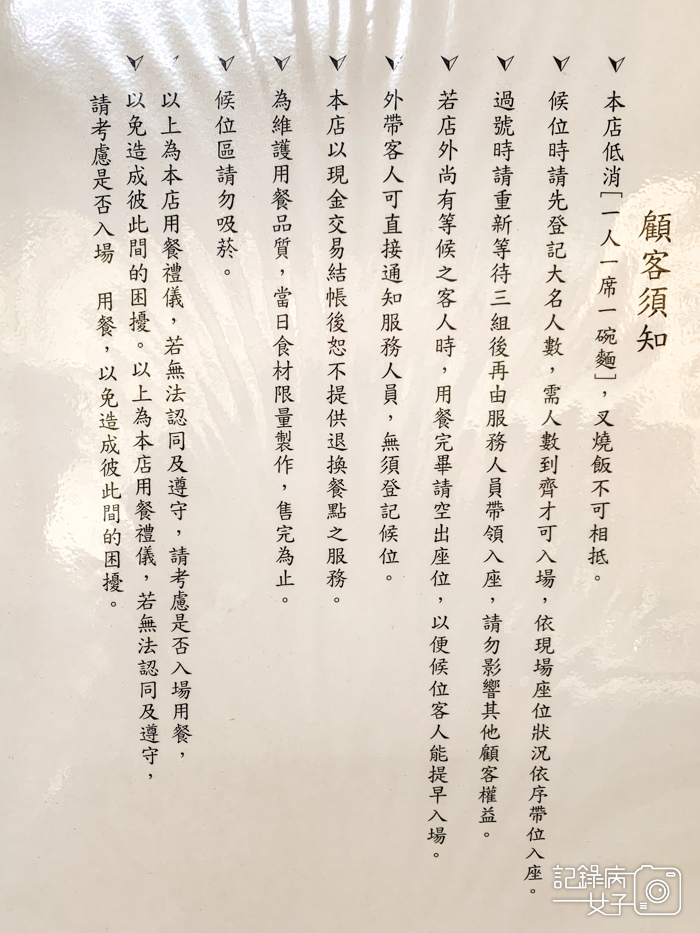 顧客須知
本店低消[一人一席一碗麵]，叉燒飯不可相抵。
候位時請先登記大名人數，需人數到齊才可入場，依現場座位狀況依序帶位入座。
過號時請重新等待三組後再由服務人員帶領入座，請勿影響其他顧客權益。
若店外尚有等候之客人時，用餐完畢請空出座位，以便候位客人能提早入場。
外帶客人可直接通知服務人員，無須登記候位。
本店以現金交易結帳後恕不提供退換餐點之服務。
為維護用餐品質，當日食材限量製作，售完為止。
候位區請勿吸菸。
以上為本店用餐禮儀，若無法認同及遵守，請考慮是否入場用餐，
以免造成彼此間的困擾。以上為本店用餐禮儀，若無法認同及遵守，
請考慮是否入場 用餐，以免造成彼此間的困擾。
記錄病
女子